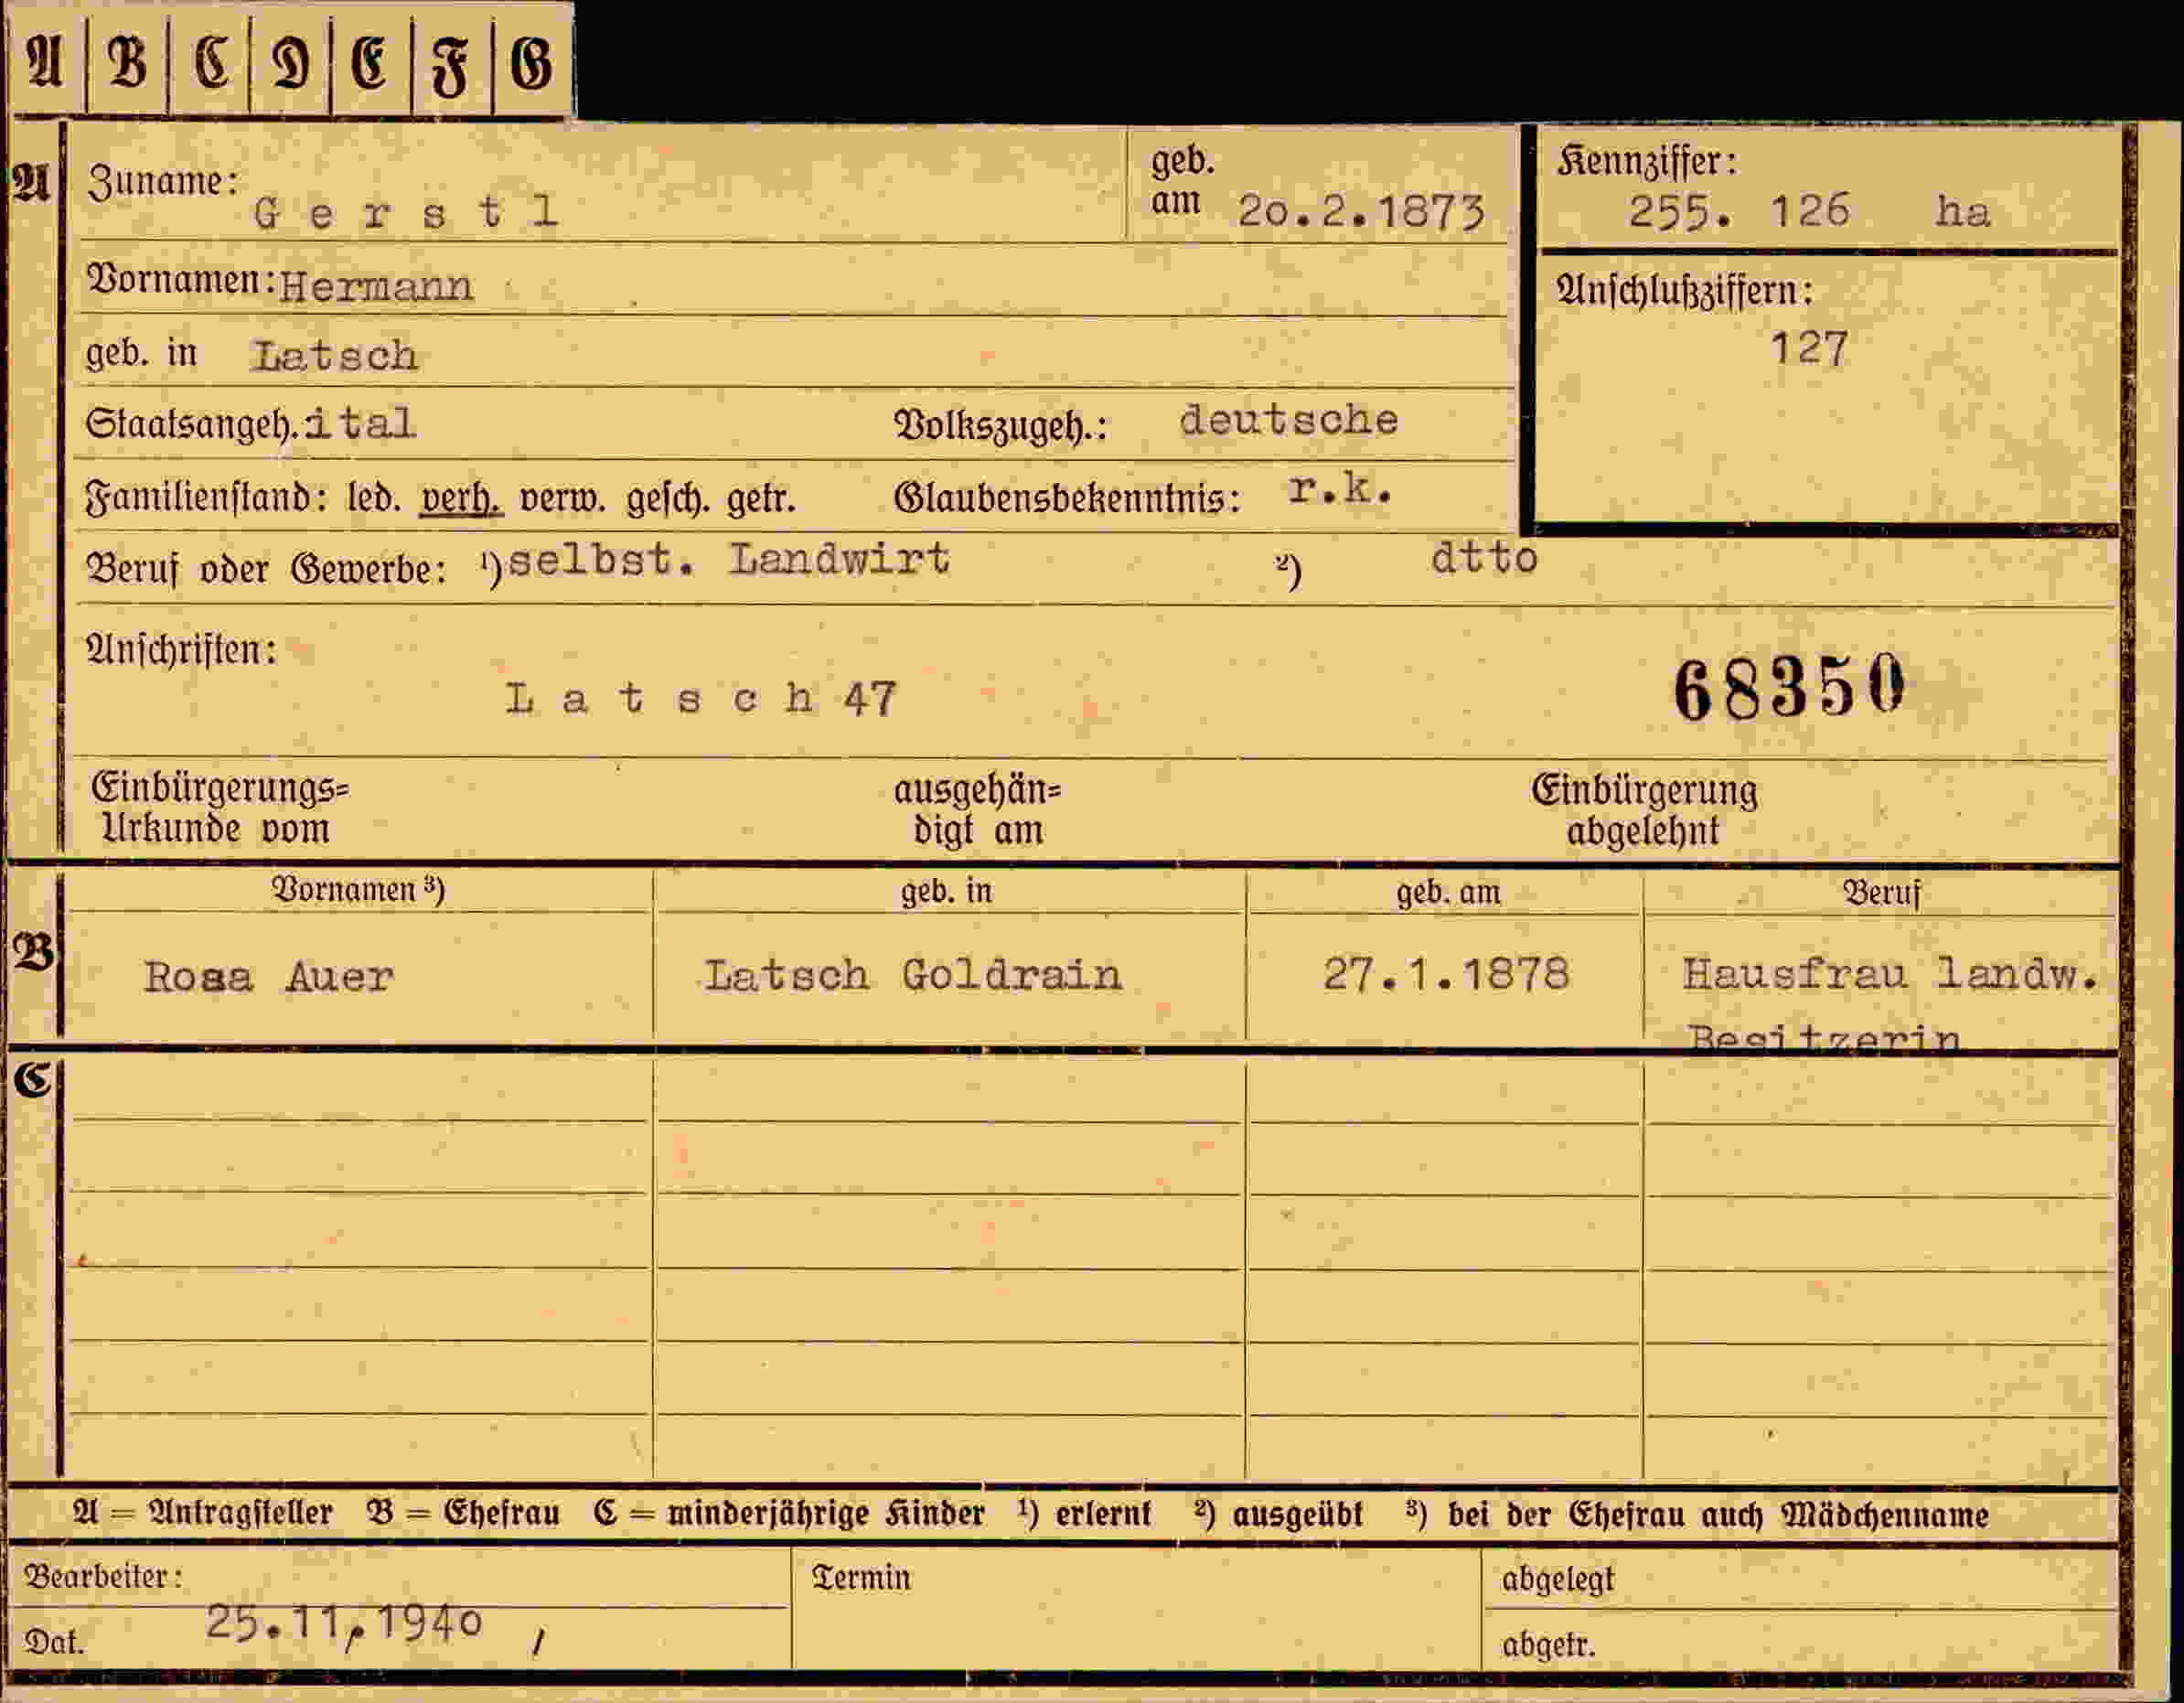 A B C D E F G
A Zuname: Gerstl geb. am 20.2.1873 Kennziffer: 255. 126 ha
Vornamen: Hermann Anschlußziffern: 127
geb. in Latsch
Staatsangeh. ital Volkszugeh.: deutsche
Familienstand: led. verh. verw. gesch. getr. Glaubensbekenntnis: r.k.
Beruf oder Gewerbe: ¹) selbst. Landwirt ²) dtto
Anschriften:
Latsch 47 68350
Einbürgerungs= ausgehän= Einbürgerung
Urkunde vom digt am abgelehnt
Vornamen ³) geb. in geb. am Beruf
B Rosa Auer Latsch Goldrain 27.1.1878 Hausfrau landw.
Besitzerin
C
A = Antragsteller B = Ehefrau C = minderjährige Kinder ¹) erlernt ²) ausgeübt ³) bei der Ehefrau auch Mädchenname
Bearbeiter: Termin abgelegt
Dat. 25.11.1940 , abgetr.